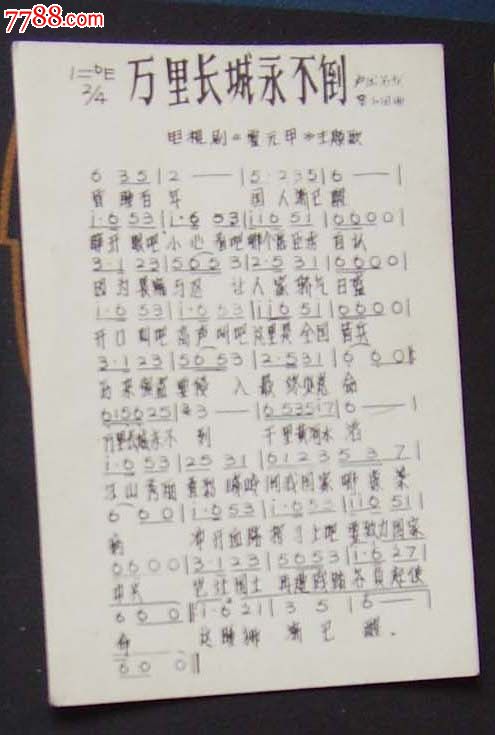 7788.com
1=bE
2/4
万里长城永不倒
电视剧《霍元甲》主题歌
6 3 5 | 2 — — | 5 · 2 3 5 | 6 — |
昏睡百年 国人渐已醒
i · 6 5 3 | i · 6 5 3 | i i 6 5 1 | 6 6 0 0 |
睁开眼吧 小心看吧 哪个 自认
3 · 1 2 3 | 5 6 5 3 | 2 · 5 3 1 | 6 6 0 0 |
因为畏缩与忍 让人家骄气日盛
i · 6 5 3 | i · 6 5 3 | i i 6 5 1 | 6 6 0 0 |
开口叫吧 高声叫吧 这里是全国皆兵
3 · 1 2 3 | 5 6 5 3 | 2 · 5 3 1 | 6 6 0
历来强盗要侵入 最终必 命
6 1 5 6 2 5 | 3 — — | 6 5 3 5 1 7 | 6 — |
万里长城永不倒 千里黄河水滔
i · 6 5 3 | 2 5 3 1 | 6 1 2 3 5 3 7
江山秀丽 叠彩峰岭 问我国家哪像染
6 6 0 | i · 6 5 3 | i · 6 5 3 | i i 6 5 1
病 冲开血路 挥手上吧 要致力国家
6 6 0 0 | 3 · 1 2 3 | 5 6 5 3 | i · 6 2 7
中兴 岂让国土再遭践踏 各负起使
6 6 0 | i · 6 2 1 | 3 5 | 6 — |
命 这睡狮渐已醒.
6 0 0